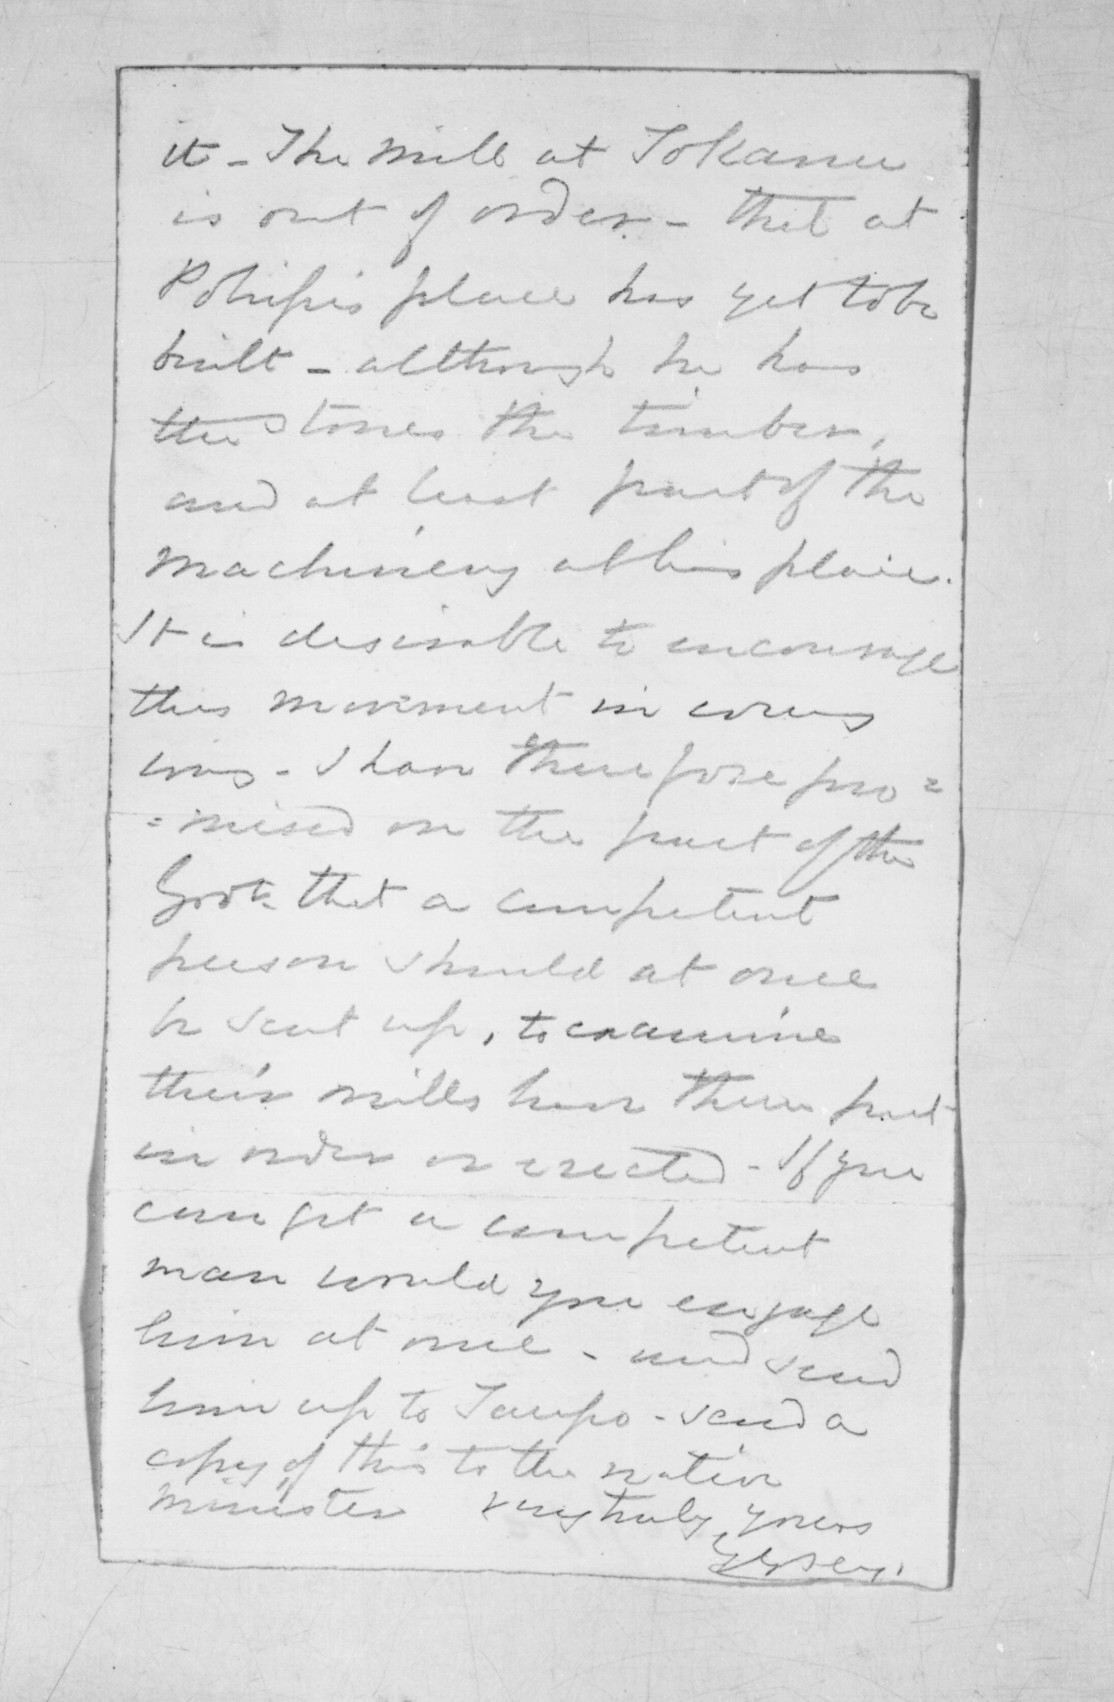 it - The mill at Tokanu
is out of order - that at
Pohipi's place has yet to be
built - although he has
the stones the timber,
and at least part of the
machinery at his place.
It is desirable to encourage
this movement in every
way - I have therefore pro=
=mised on the part of the
Govt. that a competent
person should at once
be sent up, to examine
their mills have them put
in order or erected - If you
can get a competent
man would you engage
him at once - and send
him up to Taupo - send a
copy of this to the native
minister very truly yours